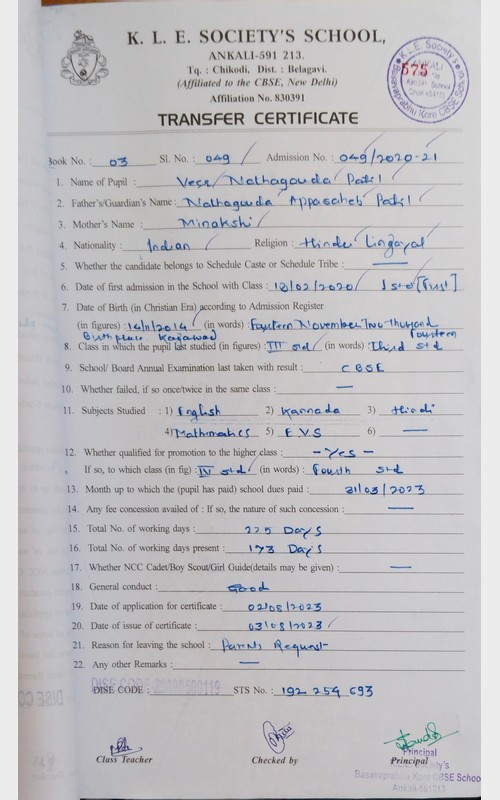 K. L. E. SOCIETY'S SCHOOL,
ANKALI-591 213.
Tq. : Chikodi, Dist. : Belagavi.
(Affiliated to the CBSE, New Delhi)
Affiliation No. 830391
K.L.E. Society's
ANKALI
575
Basavaprabhu Kore CBSE School
TRANSFER CERTIFICATE
Book No. : 03 Sl. No. : 049 / Admission No. : 049/2020-21
1. Name of Pupil : Veer Nathagouda Patil
2. Father's/Guardian's Name : Nathagouda Appasaheb Patil
3. Mother's Name : Minakshi
4. Nationality : Indian Religion : Hindu Lingayat
5. Whether the candidate belongs to Schedule Caste or Schedule Tribe : —
6. Date of first admission in the School with Class : 18/02/2020 I std [First]
7. Date of Birth (in Christian Era) according to Admission Register
(in figures) : 14/11/2014 (in words) : Fourteen November Two thousand Fourteen
Birth place Kagawad
8. Class in which the pupil last studied (in figures) : III std (in words) : Third std
9. School/ Board Annual Examination last taken with result : CBSE
10. Whether failed, if so once/twice in the same class : —
11. Subjects Studied : 1) English 2) Kannada 3) Hindi
4) Mathematics 5) E.V.S 6) —
12. Whether qualified for promotion to the higher class : - Yes -
If so, to which class (in fig) : IV std (in words) : Fourth std
13. Month up to which the (pupil has paid) school dues paid : 31/03/2023
14. Any fee concession availed of : If so, the nature of such concession : —
15. Total No. of working days : 225 Days
16. Total No. of working days present : 173 Days
17. Whether NCC Cadet/Boy Scout/Girl Guide(details may be given) : —
18. General conduct : Good
19. Date of application for certificate : 02/08/2023
20. Date of issue of certificate : 03/08/2023
21. Reason for leaving the school : Parnts Request
22. Any other Remarks : —
DISE CODE : STS No. : 192 254 693
Class Teacher Checked by Principal
Principal
Basavaprabhu Kore CBSE School
Ankali-591213